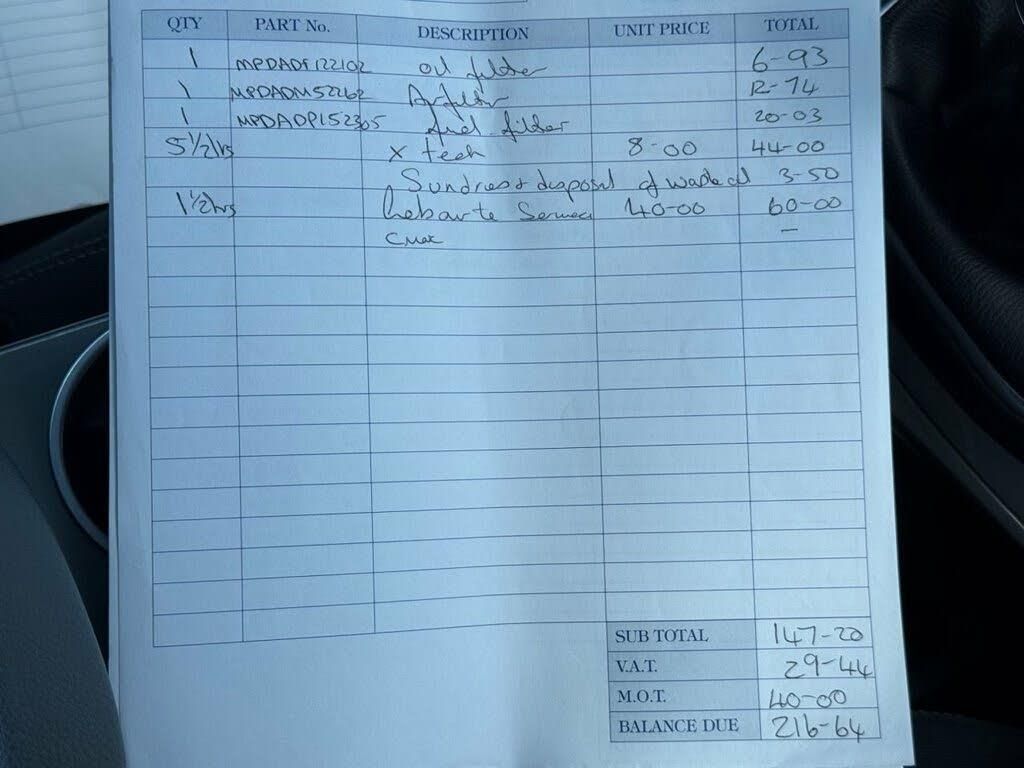 QTY PART No. DESCRIPTION UNIT PRICE TOTAL
1 MPDADF122102 oil filter 6-93
1 MPDADM52262 Air filter 12-74
1 MPDADP152305 fuel filter 20-03
5 1/2 hrs X tech 8-00 44-00
Sundries + disposal of waste oil 3-50
1 1/2 hrs Labour to Service 40-00 60-00
CMax —
SUB TOTAL 147-20
V.A.T. 29-44
M.O.T. 40-00
BALANCE DUE 216-64